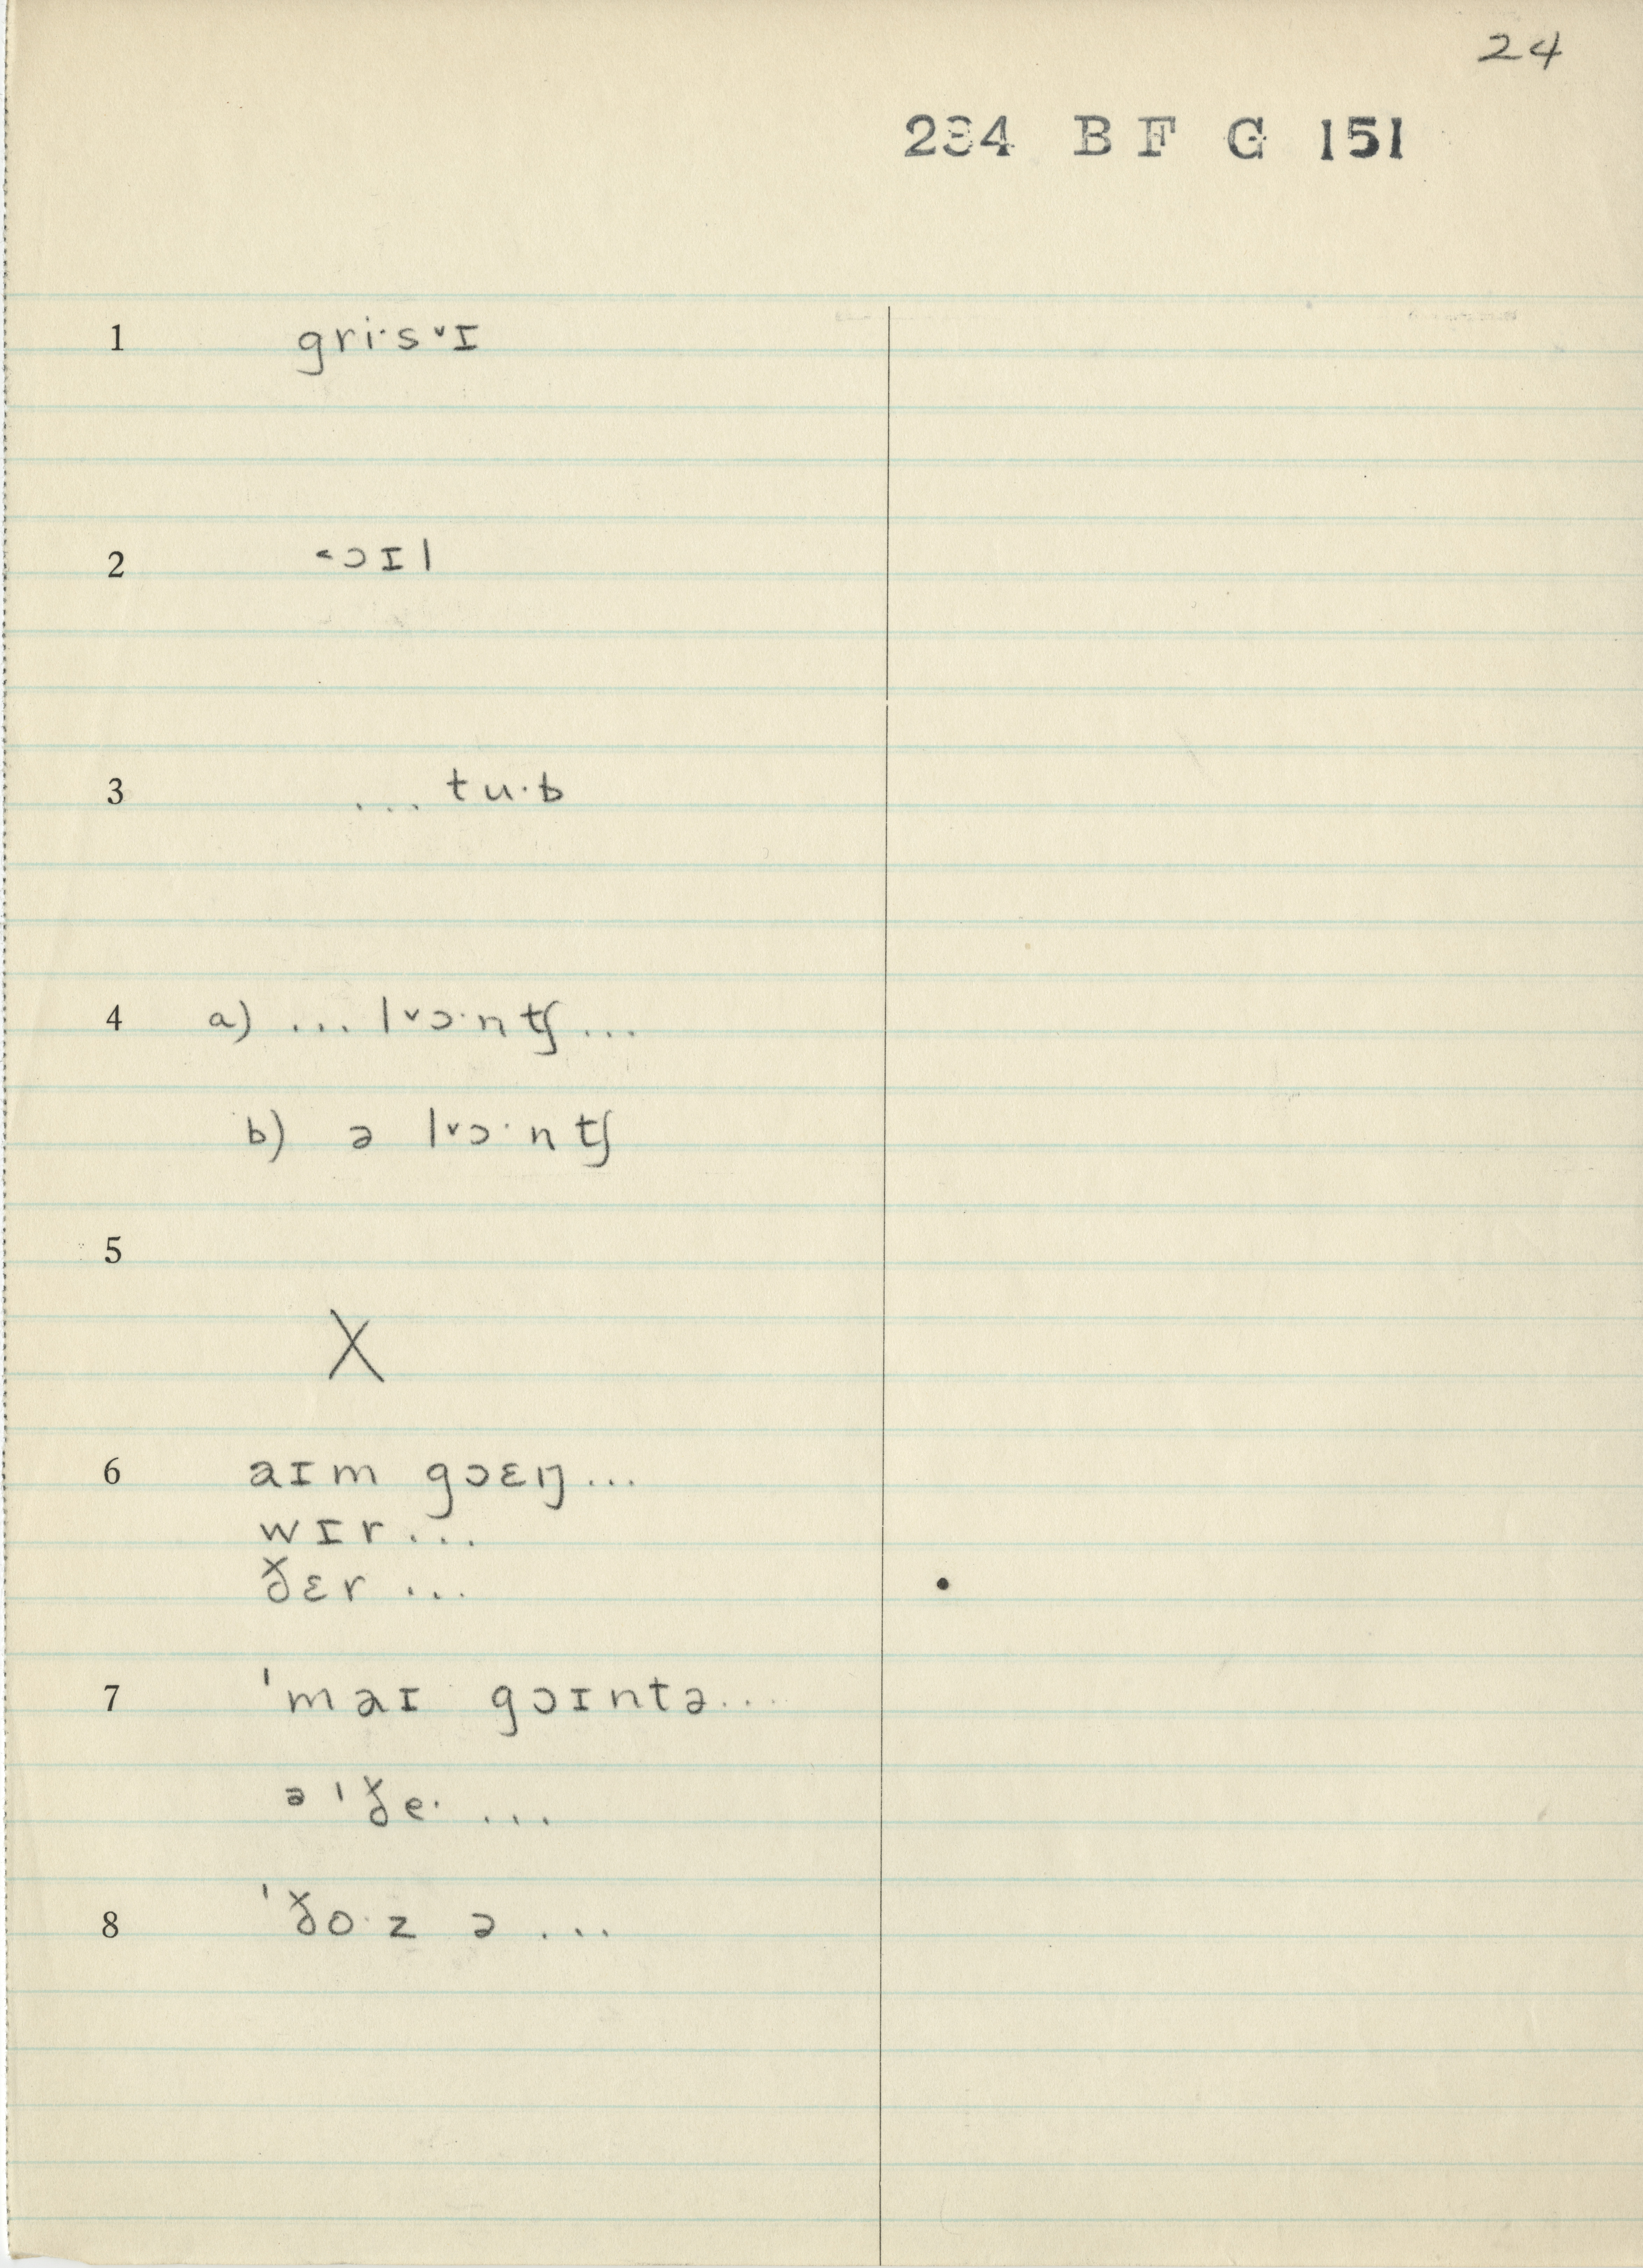 24
234 B F G 151
1 gri·s˅ɪ
2 ˂ɔɪl
3 ... tu·b
4 a) ... l˅ɔ·nʧ ...
b) ə l˅ɔ·nʧ
5
X
6 aɪm gɔɛŋ ...
wɪr ...
ðɛr ...
7 ˈmaɪ gɔɪntə ....
ə ˈðe· ...
8 ˈðo·z ə ...